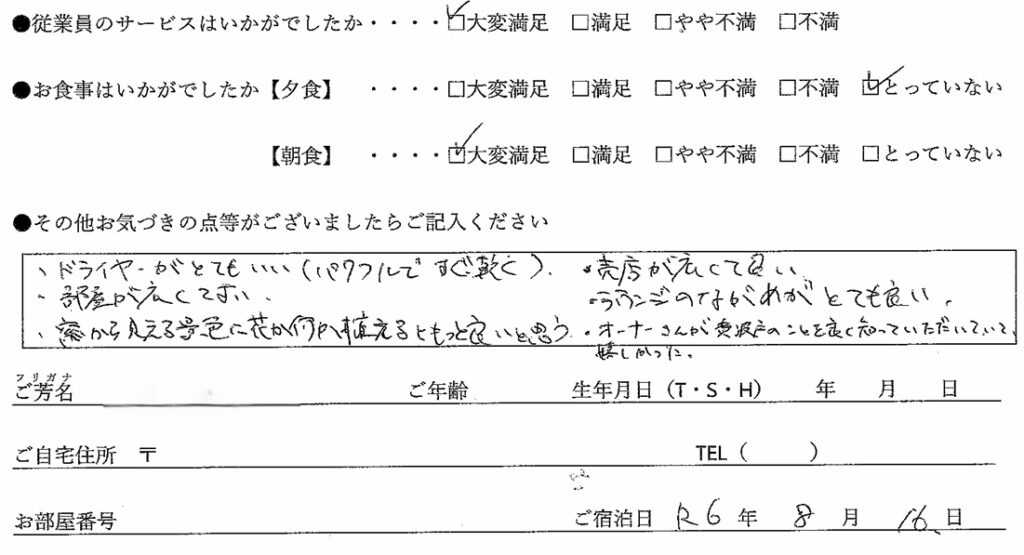 ●従業員のサービスはいかがでしたか・・・・□大変満足 □満足 □やや不満 □不満
●お食事はいかがでしたか【夕食】 ・・・・□大変満足 □満足 □やや不満 □不満 □とっていない
【朝食】 ・・・・□大変満足 □満足 □やや不満 □不満 □とっていない
●その他お気づきの点等がございましたらご記入ください
、ドライヤーがとてもいい(パワフルですぐ乾く). ・売店が広くて良い
・部屋が広くて. ・ラウンジのながめがとても良い.
・窓から見える景色に花か何か植えるともっと良いと思う. ・オーナーさんがのことを良く知っていただいていて、
嬉しかった.
フリガナ
ご芳名 ご年齢 生年月日(T・S・H) 年 月 日
ご自宅住所 〒 TEL( )
お部屋番号 ご宿泊日 R6年 8月 16日